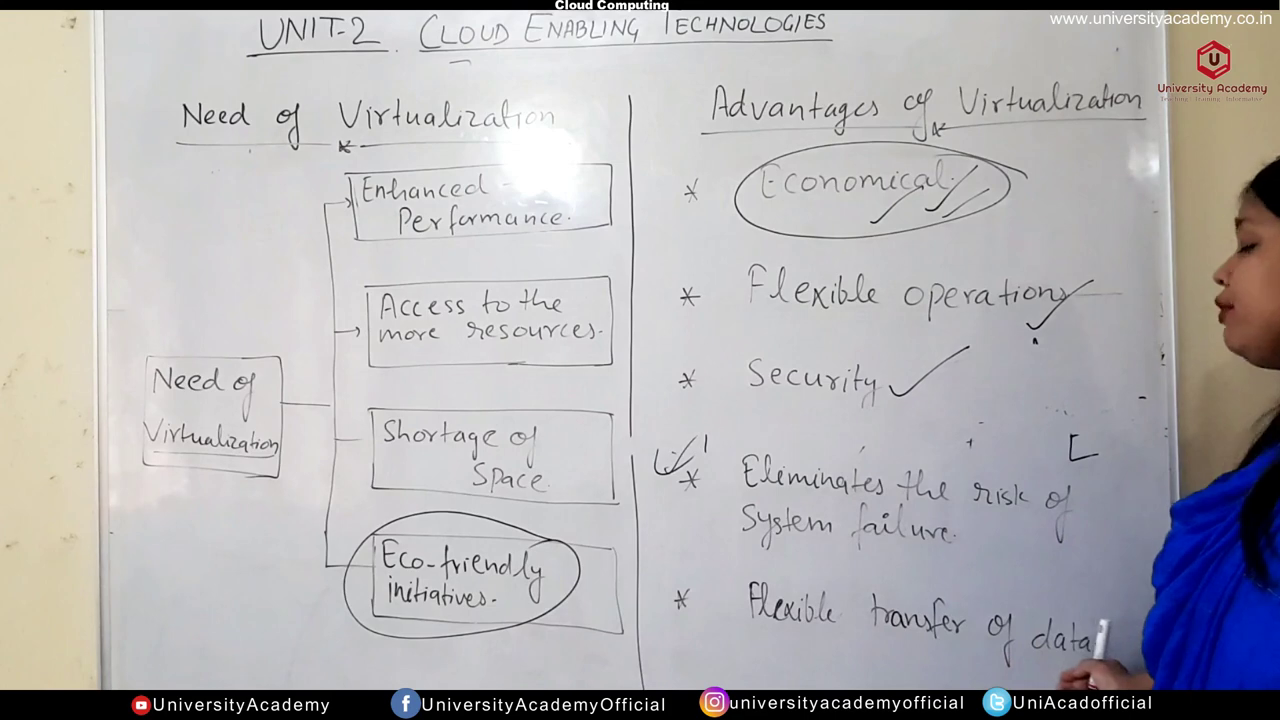 Cloud Computing
www.universityacademy.co.in
UNIT-2. CLOUD ENABLING TECHNOLOGIES
U
University Academy
Teaching | Training | Informative
Need of Virtualization
Enhanced
Performance.
Access to the
more resources.
Need of
Virtualization
Shortage of
Space.
Eco-friendly
initiatives.
Advantages of Virtualization
* Economical.
* Flexible operations
* Security
* Eliminates the risk of
System failure.
* Flexible transfer of data
UniversityAcademy
UniversityAcademyOfficial
universityacademyofficial
UniAcadofficial